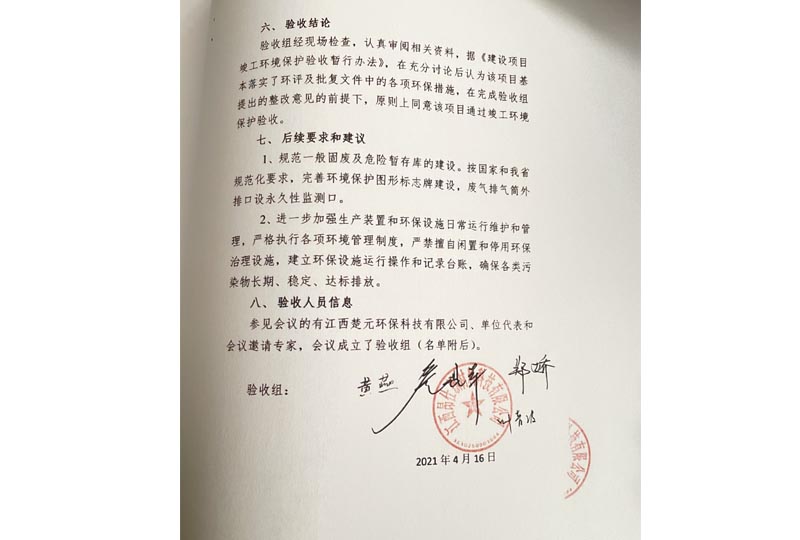 六、 验收结论
验收组经现场检查，认真审阅相关资料，据《建设项目
竣工环境保护验收暂行办法》，在充分讨论后认为该项目基
本落实了环评及批复文件中的各项环保措施，在完成验收组
提出的整改意见的前提下，原则上同意该项目通过竣工环境
保护验收。
七、 后续要求和建议
1、规范一般固废及危险暂存库的建设。按国家和我省
规范化要求，完善环境保护图形标志牌建设，废气排气筒外
排口设永久性监测口。
2、进一步加强生产装置和环保设施日常运行维护和管
理，严格执行各项环境管理制度，严禁擅自闲置和停用环保
治理设施，建立环保设施运行操作和记录台账，确保各类污
染物长期、稳定、达标排放。
八、 验收人员信息
参见会议的有江西楚元环保科技有限公司、单位代表和
会议邀请专家，会议成立了验收组（名单附后）。
验收组： 黄燕
2021 年 4 月 16 日